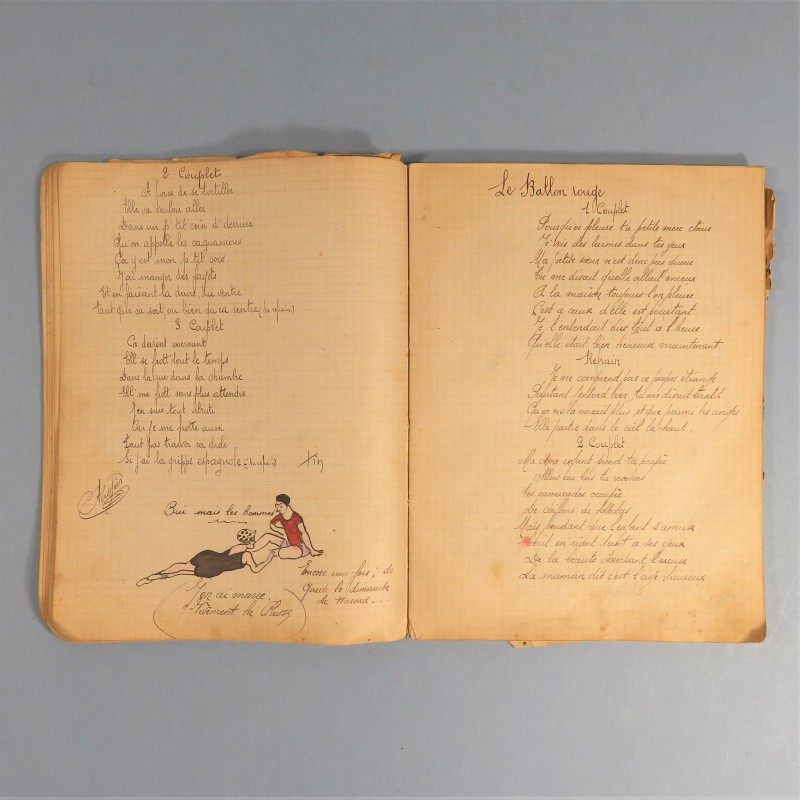 2 Couplet
A force de se tortiller
Elle va vouloir aller
Dans un p'tit coin d'derrière
Qu'on appelle les
Ça y'est mon p'tit coco
J'ai manger des fayots
Et en faisant la danse du ventre
Faut que ça sort, ou bien qu'ça rentre, (au refrain)
3 Couplet
Ca devient enervant
Ell' se frott' tout le temps
Dans la rue dans la chambre
Ell' me frott sans plus attendre
J'en suis tout abruti
Car je me frotte aussi
Faut pas trouver ca drole
Si j'ai la grippe espagnole (au refrain)
Fin
Oui mais les hommes
J'en ai marre.
Vivement la
Encore une fois, de
Garde le dimanche
Le Hasard...
Le Ballon rouge
1 Couplet
Pourquoi pleure tu petite mere chérie
Je vois des larmes dans tes yeux
Ma petite sœur n'est donc pas guerie
Tu me disait quelle allait mieux
A la maison toujours l'on pleure
C'est a cause d'elle est pourtant
Je l'entendait dire tout a l'heure
Qu'elle etait bien heureuse maintenant
Refrain
Je ne comprend pas ce propos étrange
Pourtant j'entend bien, tu me disait tantôt
Qu'on ne la verait plus et que parmi les anges
Elle partie dans le ciel la haut.
2 Couplet
Ma chere enfant prend ta poupée
Allons au bois tu reveras
Les camarades occupée
De
Mais pendant que l'enfant s'amuse
en rient tant a ses yeux
De la beaute cherchant l'excuse
La maman dit c'est l'age heureux